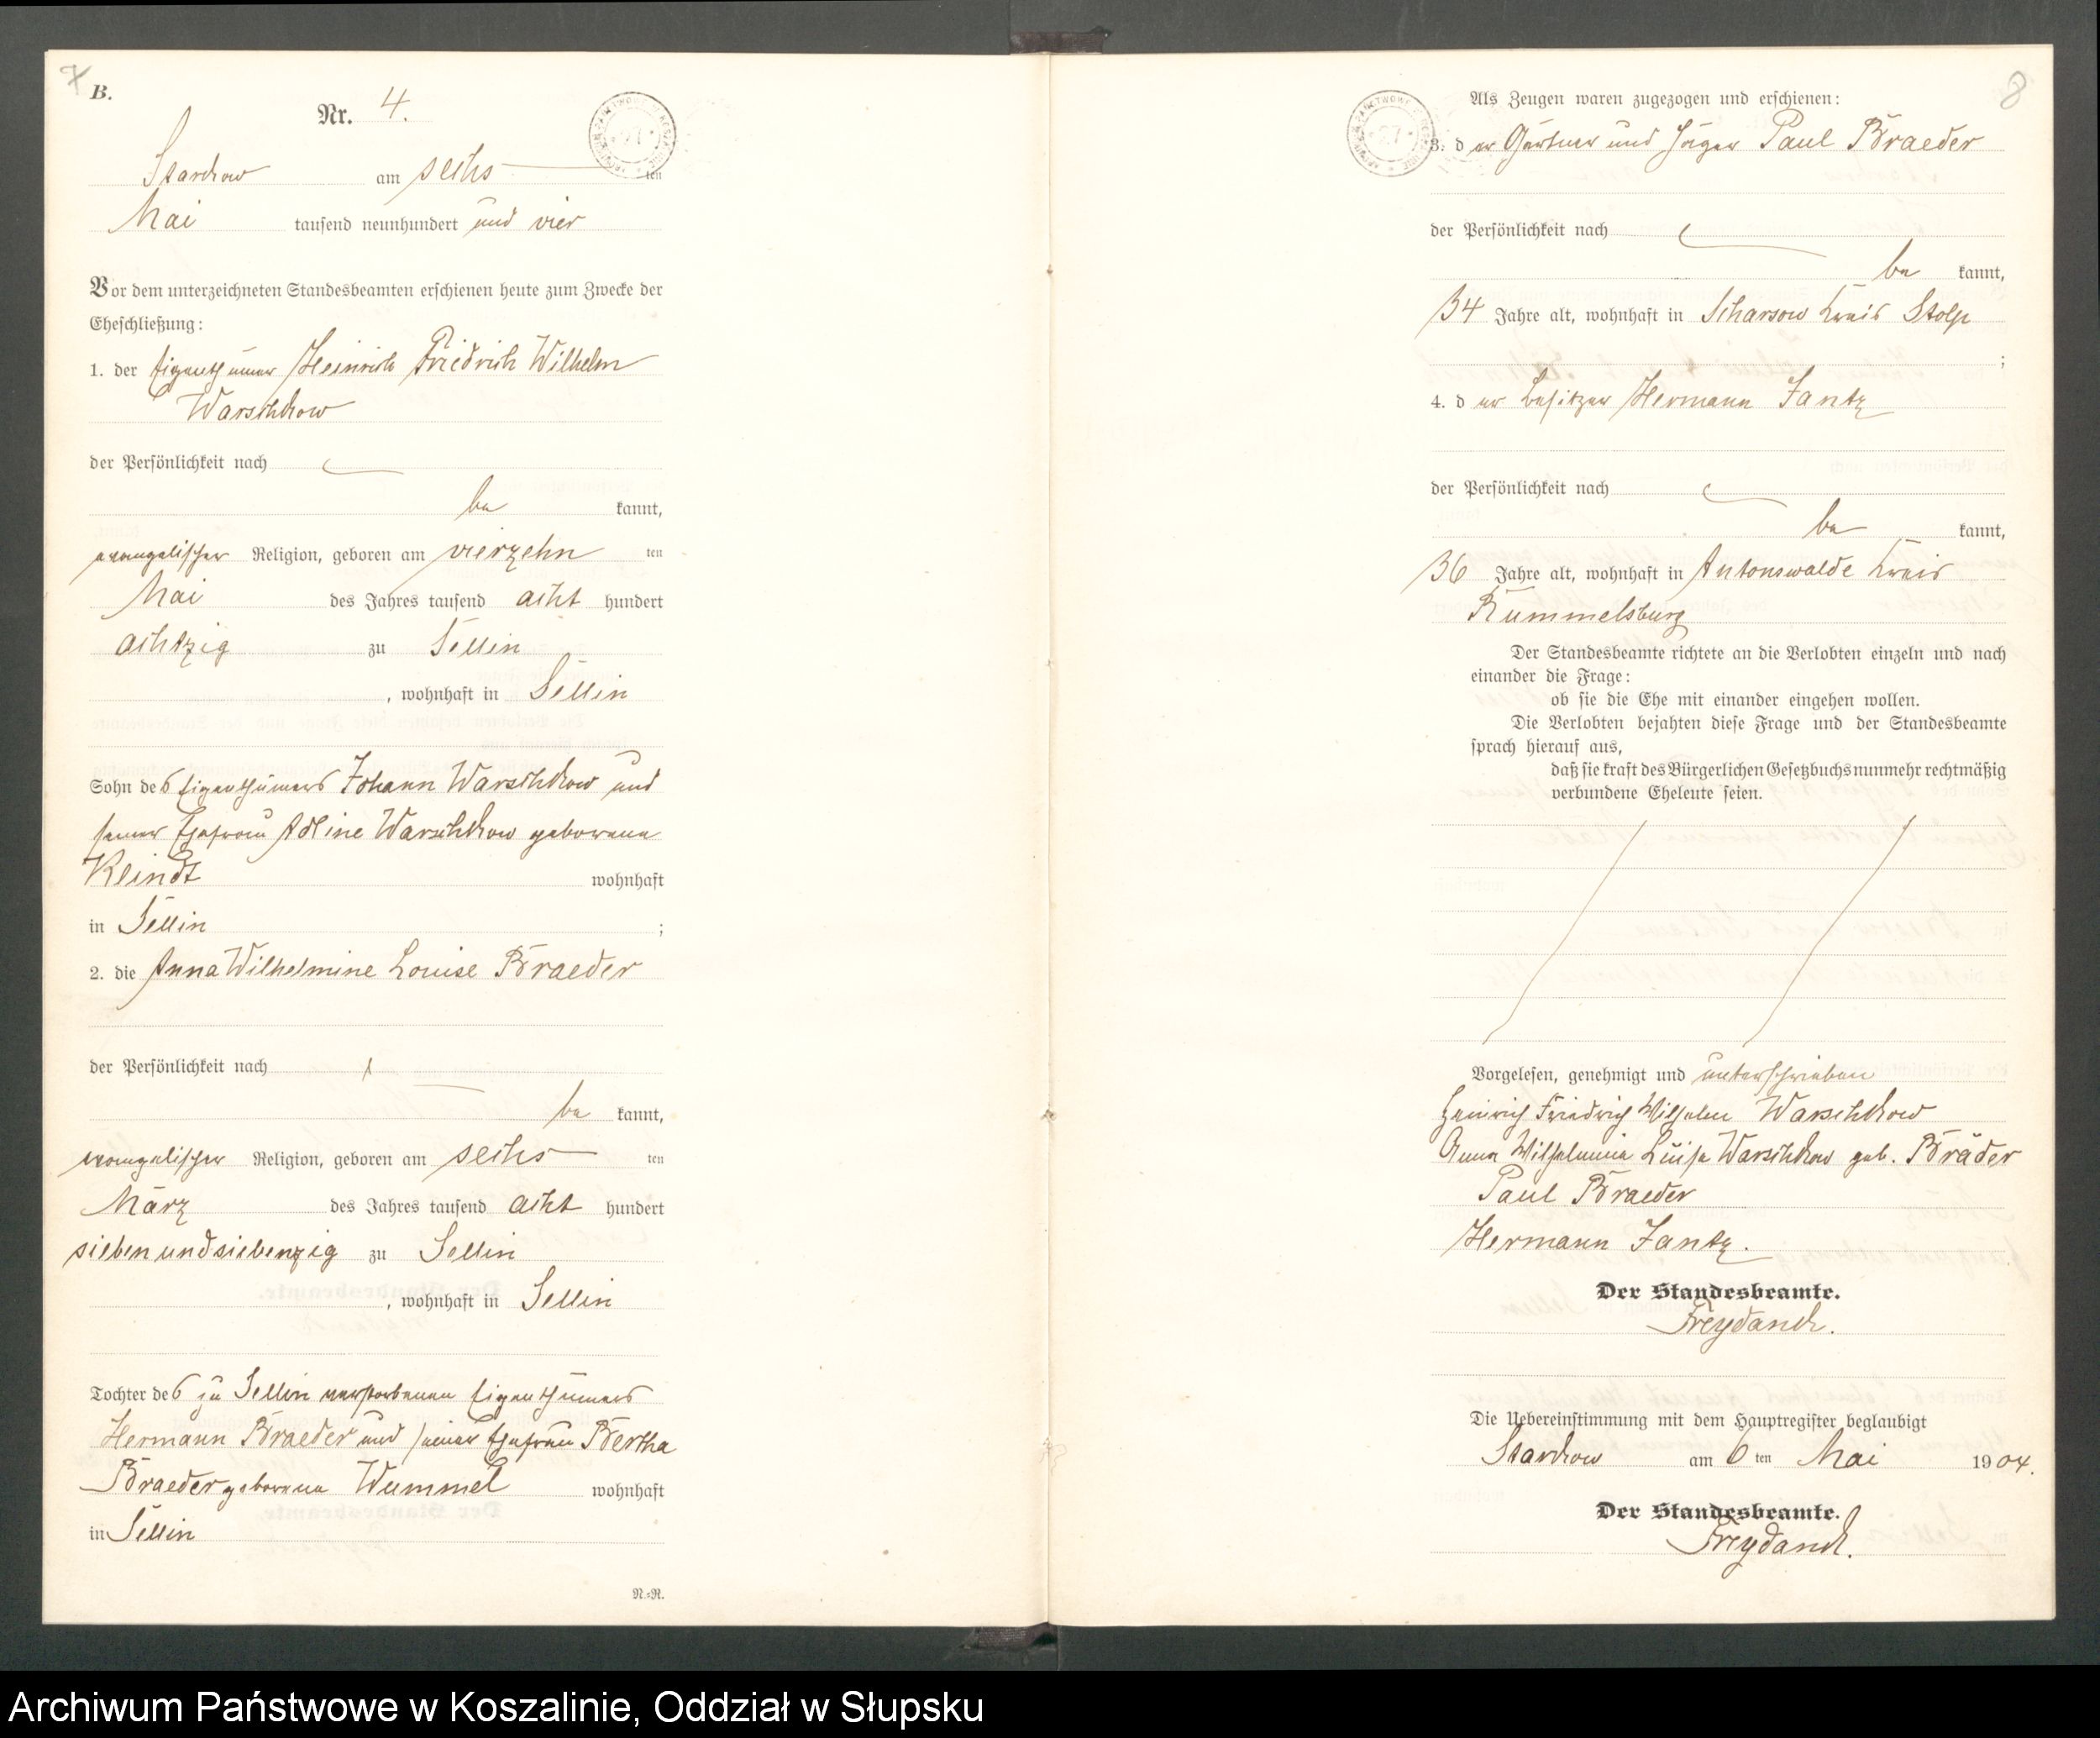 7
B.
Nr. 4.
Starckow am sechs ten
Mai tausend neunhundert und vier
Vor dem unterzeichneten Standesbeamten erschienen heute zum Zwecke der
Eheschließung:
1. der Eigenthümer Heinrich Friedrich Wilhelm
Warschkow
der Persönlichkeit nach
be kannt,
evangelischer Religion, geboren am vierzehn ten
Mai des Jahres tausend acht hundert
achtzig zu Sellin
, wohnhaft in Sellin
Sohn des Eigenthümers Johann Warschkow und
seiner Ehefrau Adline Warschkow geborene
Kleindt wohnhaft
in Sellin ;
2. die Anna Wilhelmine Louise Braeder
der Persönlichkeit nach
be kannt,
evangelischer Religion, geboren am sechs ten
März des Jahres tausend acht hundert
siebenundsiebenzig zu Sellin
, wohnhaft in Sellin
Tochter des zu Sellin verstorbenen Eigenthümers
Hermann Braeder und seiner Ehefrau Bertha
Braeder geborene Wummel wohnhaft
in Sellin
N.=R.
8
Als Zeugen waren zugezogen und erschienen:
3. d er Gärtner und Jäger Paul Braeder
der Persönlichkeit nach
be kannt,
34 Jahre alt, wohnhaft in Scharsow Kreis Stolp
;
4. d er Besitzer Hermann Jantz
der Persönlichkeit nach
be kannt,
36 Jahre alt, wohnhaft in Antonswalde Kreis
Rummelsburg
Der Standesbeamte richtete an die Verlobten einzeln und nach
einander die Frage:
ob sie die Ehe mit einander eingehen wollen.
Die Verlobten bejahten diese Frage und der Standesbeamte
sprach hierauf aus,
daß sie kraft des Bürgerlichen Gesetzbuchs nunmehr rechtmäßig
verbundene Eheleute seien.
Vorgelesen, genehmigt und unterschrieben
Heinrich Friedrich Wilhelm Warschkow
Anna Wilhelmine Luise Warschkow geb. Bräder
Paul Braeder
Hermann Jantz.
Der Standesbeamte.
Freydanck.
Die Uebereinstimmung mit dem Hauptregister beglaubigt
Starckow am 6 ten Mai 1904.
Der Standesbeamte.
Freydanck.
Archiwum Państwowe w Koszalinie, Oddział w Słupsku